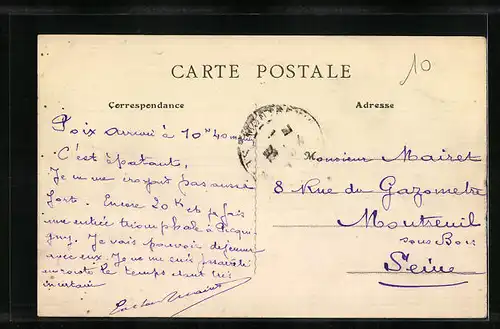 CARTE POSTALE
10
Correspondance
Adresse
Poix arrivé à 10 H 40
C'est épatant,
Je ne me croyais pas aussi
fort. Encore 20 K et je fais
une entrée triomphale à Picqui-
gny. Je vais pouvoir déjeuner
avec eux. Je me suis
en route le temps étant très
incertain
Monsieur Mairet
8 Rue du Gazomètre
Montreuil
sous Bois
Seine